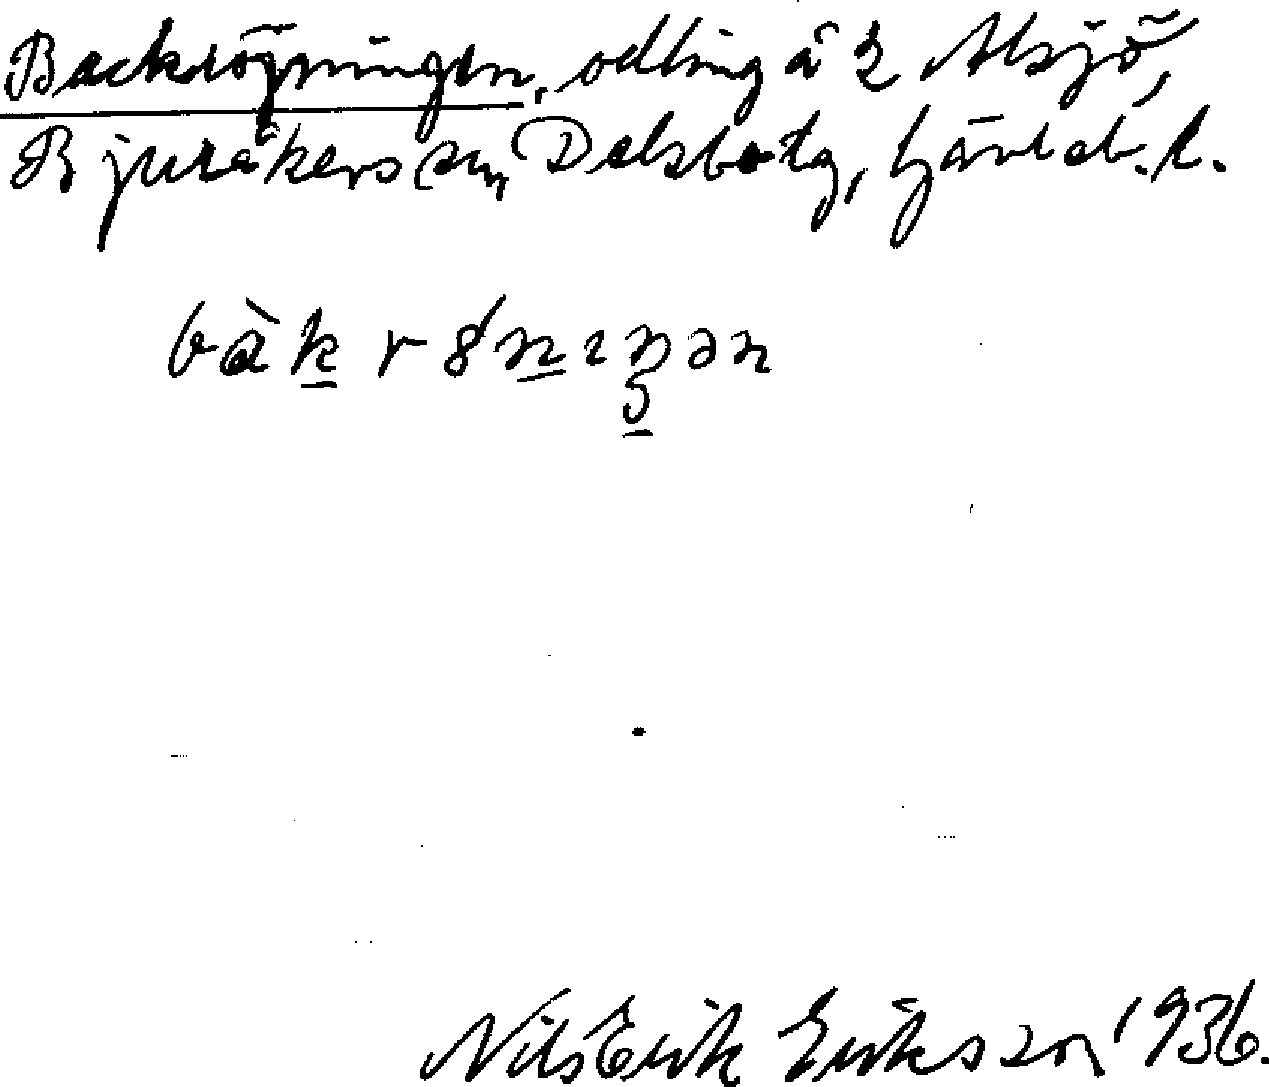 Backrögningen, odling å 2 Alsjö,
Bjuråkers sn, Delsbo tg, Gävleb. l.
bàk rǿnıŋən
Nils Erik Eriksson 1936.